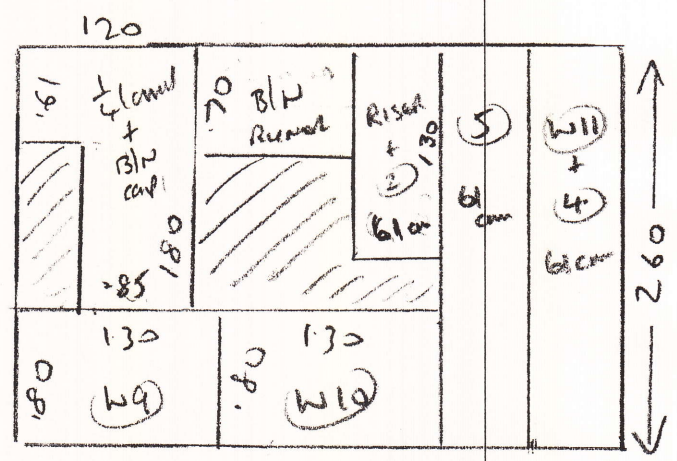 120
.61
1/4 land
+
B/N
cap
.85
180
.70
B/N
Runner
RISER
+
2
61 cm
130
5
61
cm
W11
+
4
61 cm
260
1.30
.80
W9
1.30
.80
W10